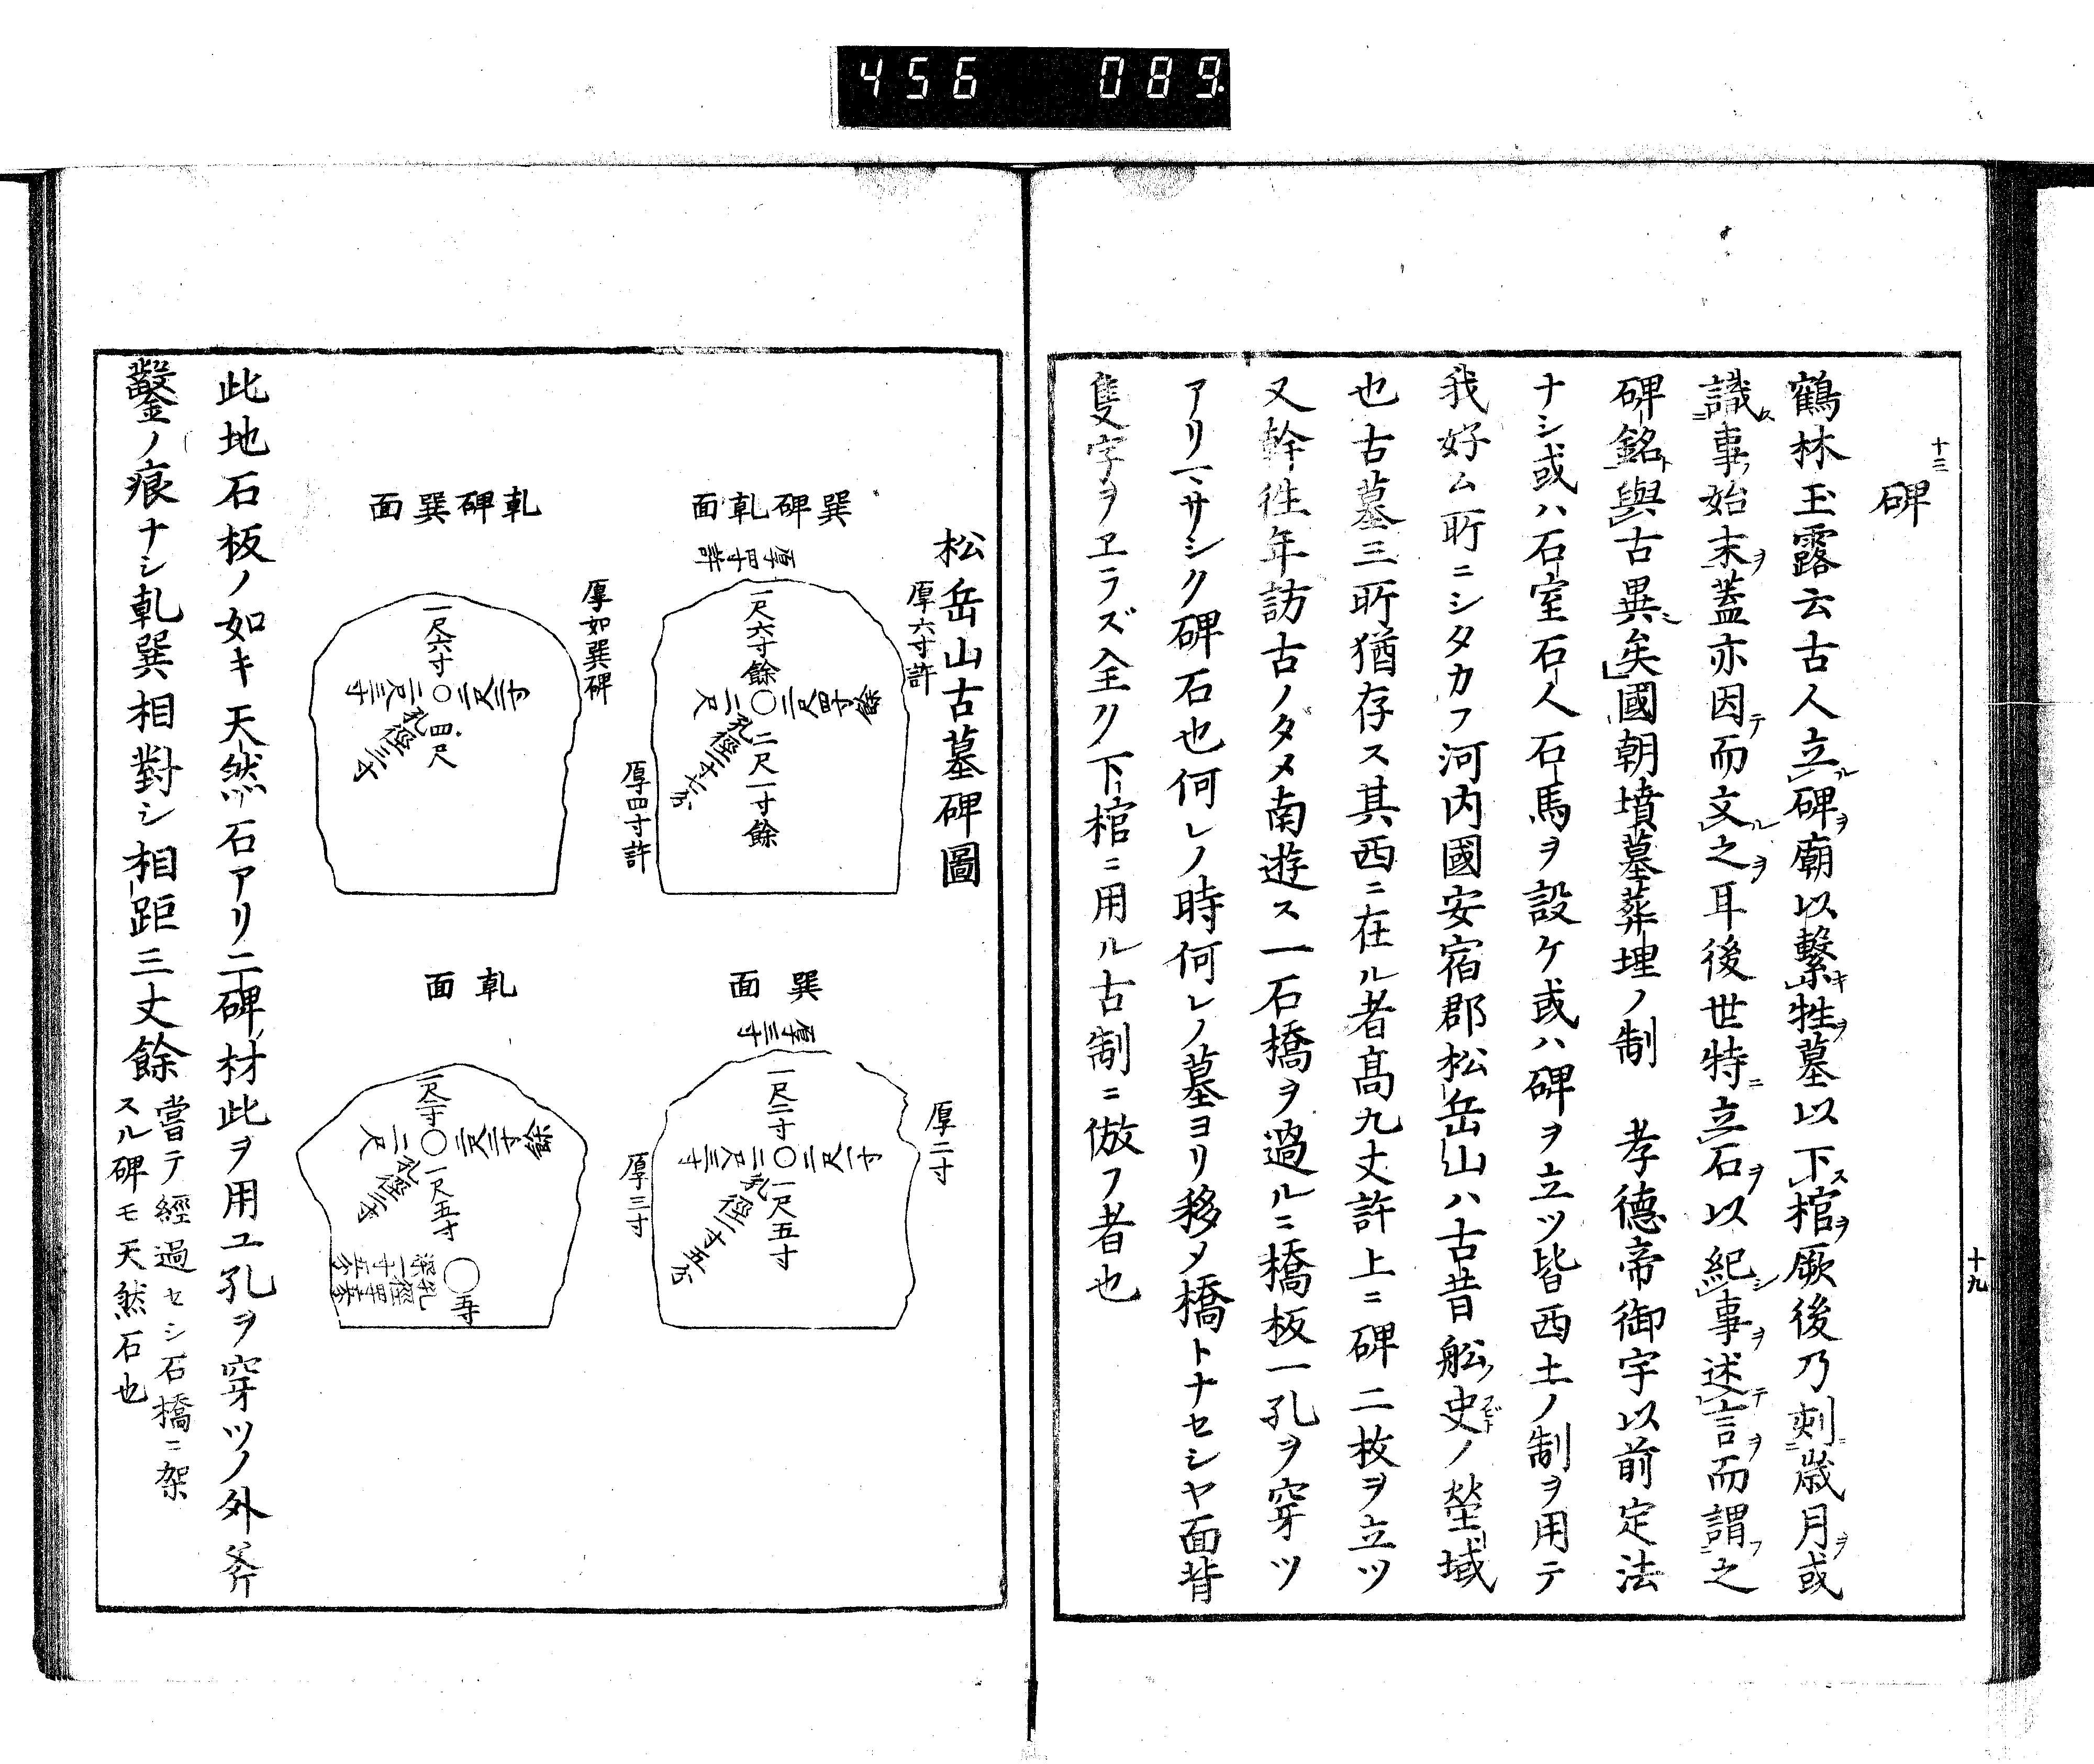 456 089
十九
十三
碑
鶴林玉露云古人立碑廟以繫牲墓以下棺厥後乃刻歳月或
識事始末蓋亦因而文之耳後世特立石以紀事述言而謂之
碑銘與古異矣國朝墳墓葬埋ノ制 孝德帝御宇以前定法
ナシ或ハ石室石人石馬ヲ設ケ或ハ碑ヲ立ツ皆西土ノ制ヲ用テ
我好ム所ニシタカフ河内國安宿郡松岳山ハ古昔船史ノ塋域
也古墓三所猶存ス其西ニ在ル者髙九丈許上ニ碑二枚ヲ立ツ
又幹徃年訪古ノタメ南遊ス一石橋ヲ過ルニ橋板一孔ヲ穿ツ
アリマサシク碑石也何レノ時何レノ墓ヨリ移メ橋トナセシヤ面背
隻字ヲヱラズ全ク下棺ニ用ル古制ニ倣フ者也
松岳山古墓碑圖
巽碑乹面
厚四寸許
厚六寸許
厚四寸許
一尺六寸餘
二尺四寸餘
二尺
孔徑一寸七分
二尺一寸餘
乹碑巽面
厚如巽碑
一尺六寸
二尺三寸
二尺三寸
孔徑二寸
四尺
巽面
厚三寸
厚二寸
厚三寸
一尺二寸
二尺一寸
二尺三寸
孔徑一寸五分
一尺五寸
乹面
二尺
孔徑二寸
一尺五寸
此地石板ノ如キ天然石アリ二碑ノ材此ヲ用ユ孔ヲ穿ツノ外斧
鑿ノ痕ナシ乹巽相對シ相距三丈餘
嘗テ經過セシ石橋ニ架
スル碑モ天然石也